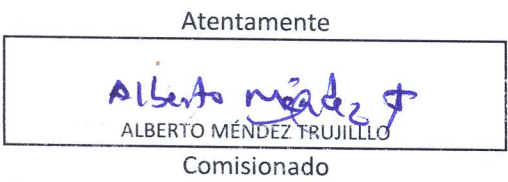 Atentamente
Alberto Méndez T
ALBERTO MÉNDEZ TRUJILLLO
Comisionado